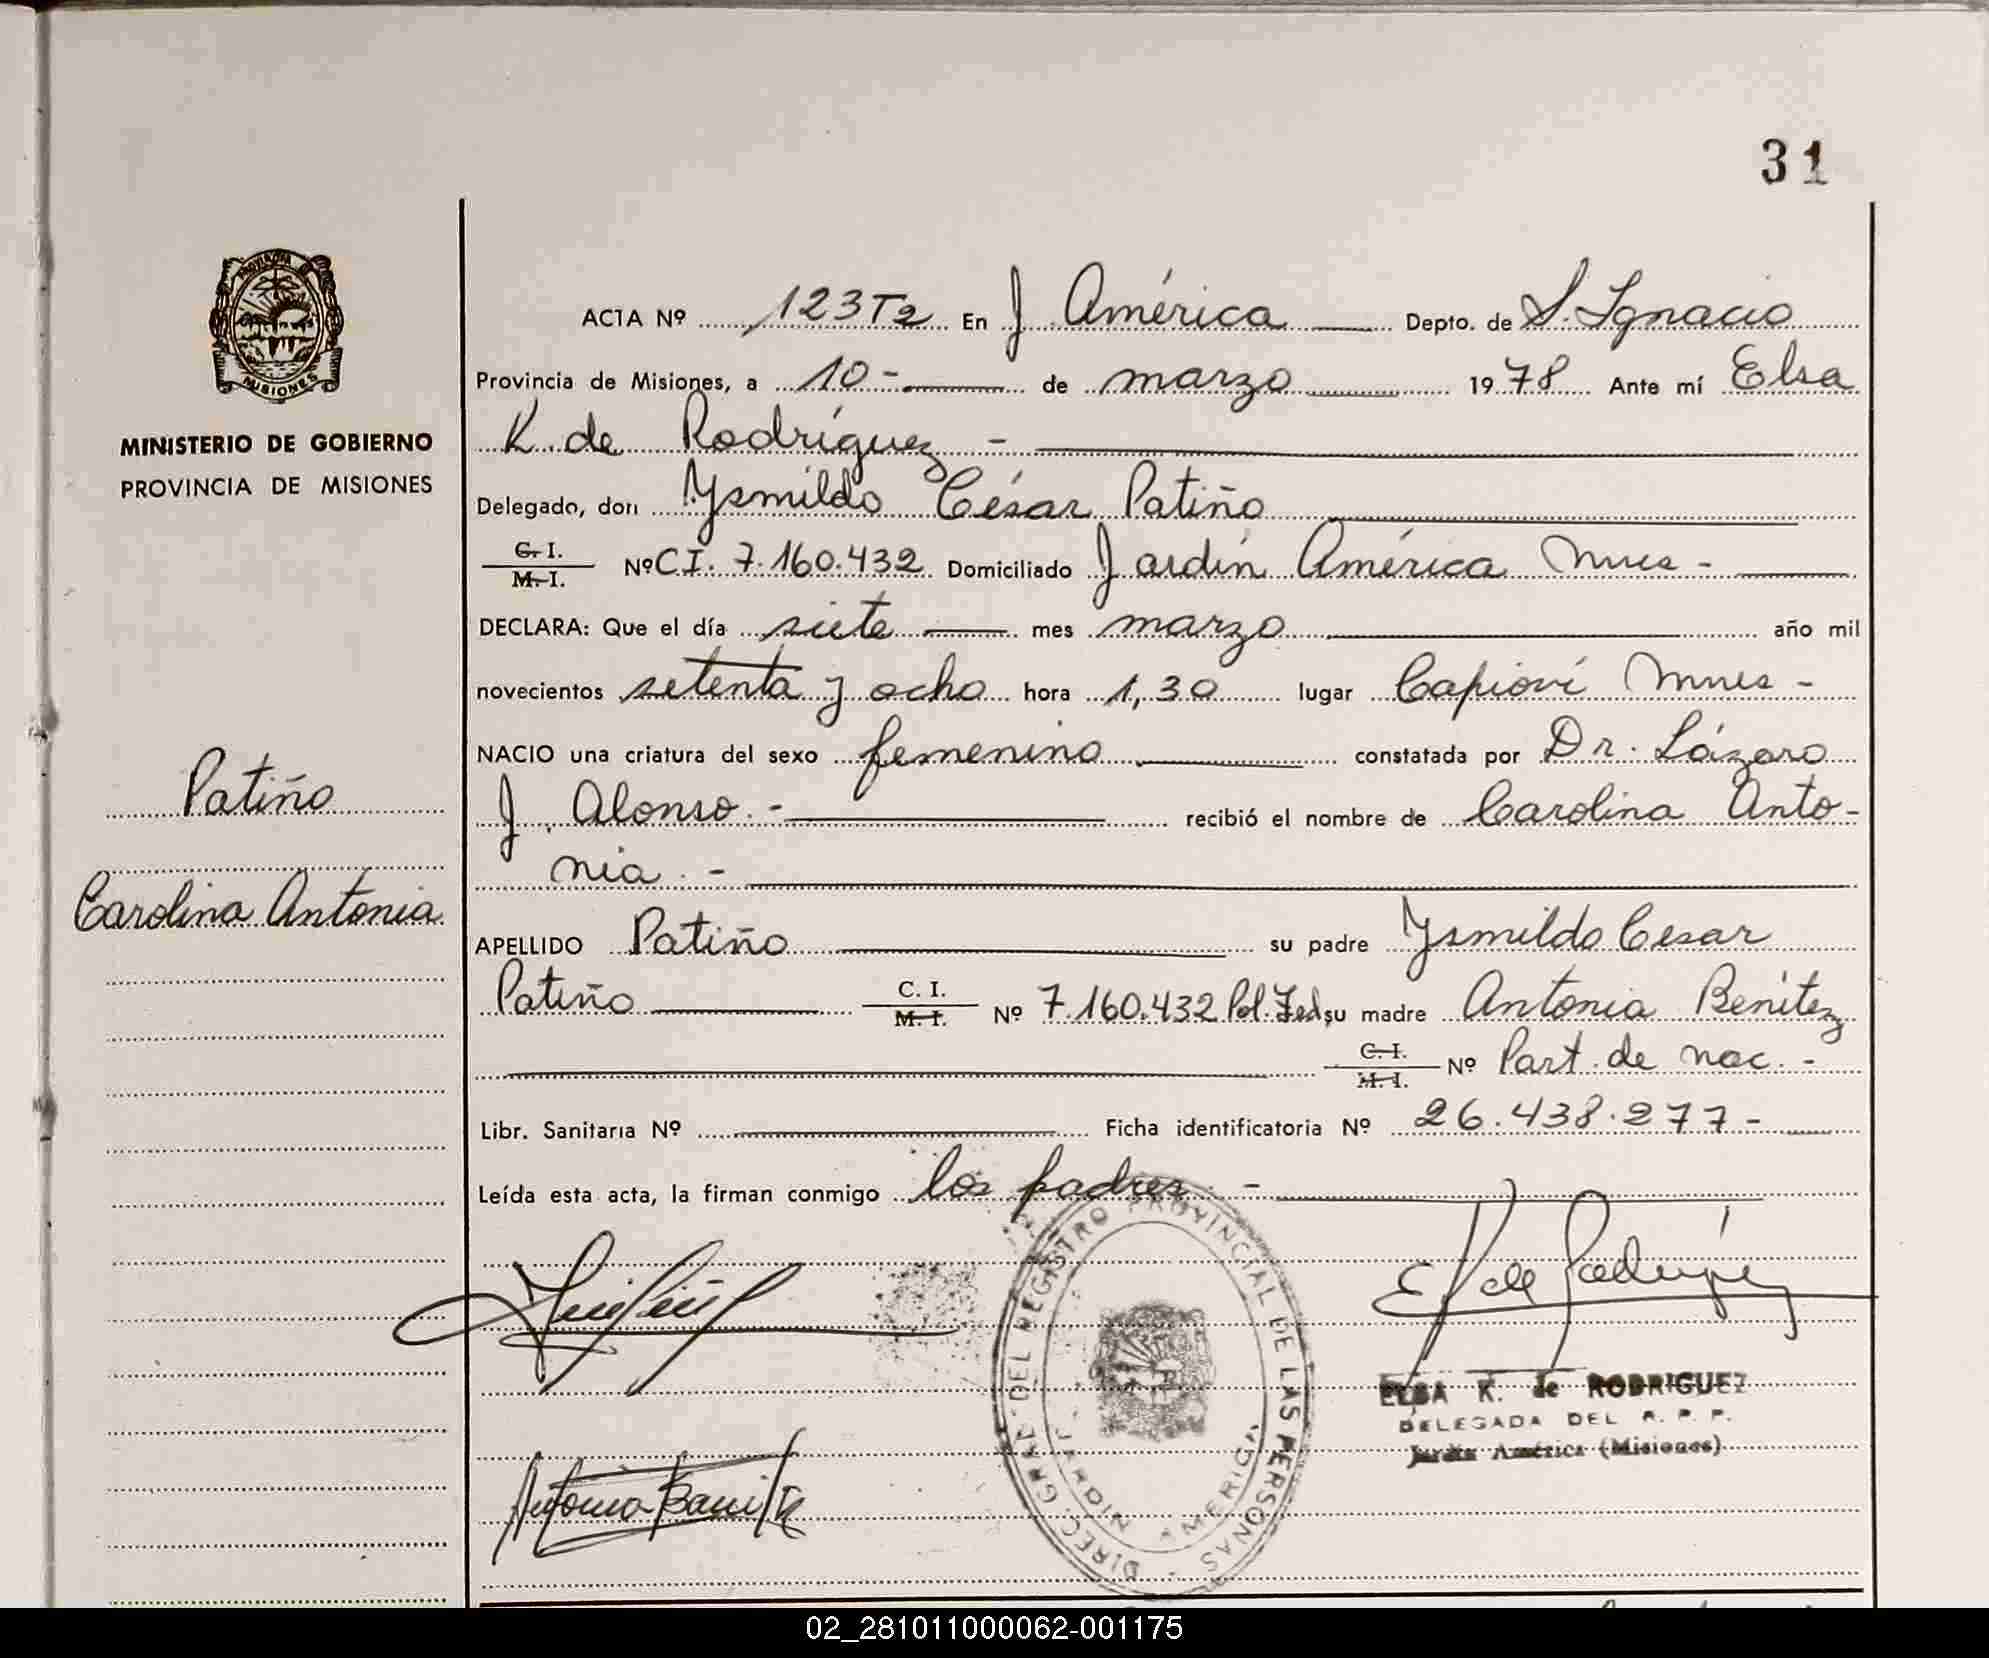 31
PROVINCIA DE
MISIONES
MINISTERIO DE GOBIERNO
PROVINCIA DE MISIONES
Patiño
Carolina Antonia
ACTA Nº 123 T2 En J. América Depto. de S. Ignacio
Provincia de Misiones, a 10- de marzo 1978 Ante mí Elsa
K. de Rodríguez -
Delegado, don Ysmildo César Patiño
C. I. / M. I. Nº CI. 7.160.432 Domiciliado Jardín América Mnes -
DECLARA: Que el día siete mes marzo año mil
novecientos setenta y ocho hora 1,30 lugar Capioví Mnes -
NACIO una criatura del sexo femenino constatada por Dr. Lázaro
J. Alonso. - recibió el nombre de Carolina Anto-
nia. -
APELLIDO Patiño su padre Ysmildo Cesar
Patiño C. I. / M. I. Nº 7.160.432 Pol. Fed. su madre Antonia Benítez
C. I. / M. I. Nº Part. de nac. -
Libr. Sanitaria Nº Ficha identificatoria Nº 26.438.277-
Leída esta acta, la firman conmigo los padres. -
DIREC. GRAL. DEL REGISTRO PROVINCIAL DE LAS PERSONAS
JARDIN AMERICA
E K de Rodríguez
ELSA K. de RODRIGUEZ
DELEGADA DEL R. P. P.
Jardín América (Misiones)
Antonia Benitez
02_281011000062-001175